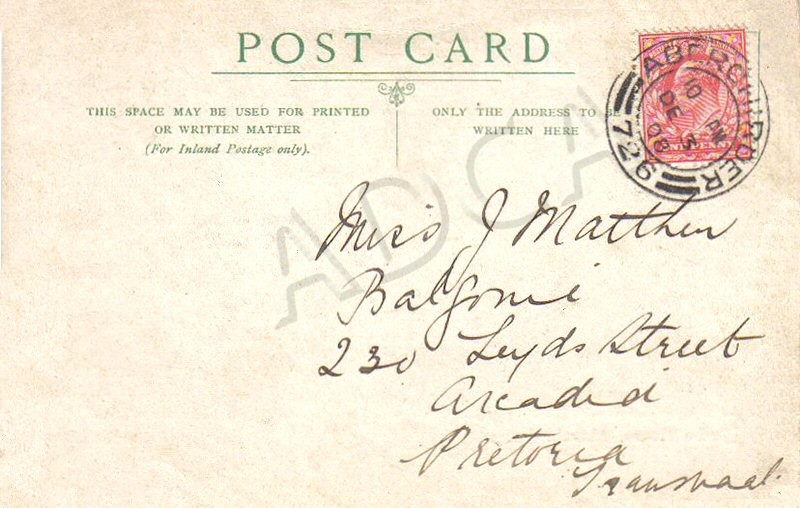 POST CARD
THIS SPACE MAY BE USED FOR PRINTED
OR WRITTEN MATTER
(For Inland Postage only).
ONLY THE ADDRESS TO BE
WRITTEN HERE
ABERCHIRDER
10 AM
DE 3
08
729
ONE PENNY
ADCA
Miss J Matthew
Balgonie
230 Leyds Street
Arcadia
Pretoria
Transvaal.